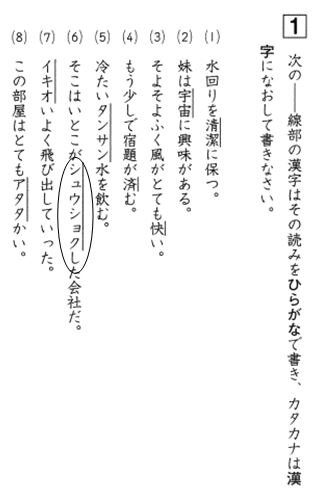 1
次の――線部の漢字はその読みをひらがなで書き、カタカナは漢
字になおして書きなさい。
(1) 水回りを清潔に保つ。
(2) 妹は宇宙に興味がある。
(3) そよそよふく風がとても快い。
(4) もう少しで宿題が済む。
(5) 冷たいタンサン水を飲む。
(6) そこはいとこがシュウショクした会社だ。
(7) イキオいよく飛び出していった。
(8) この部屋はとてもアタタかい。